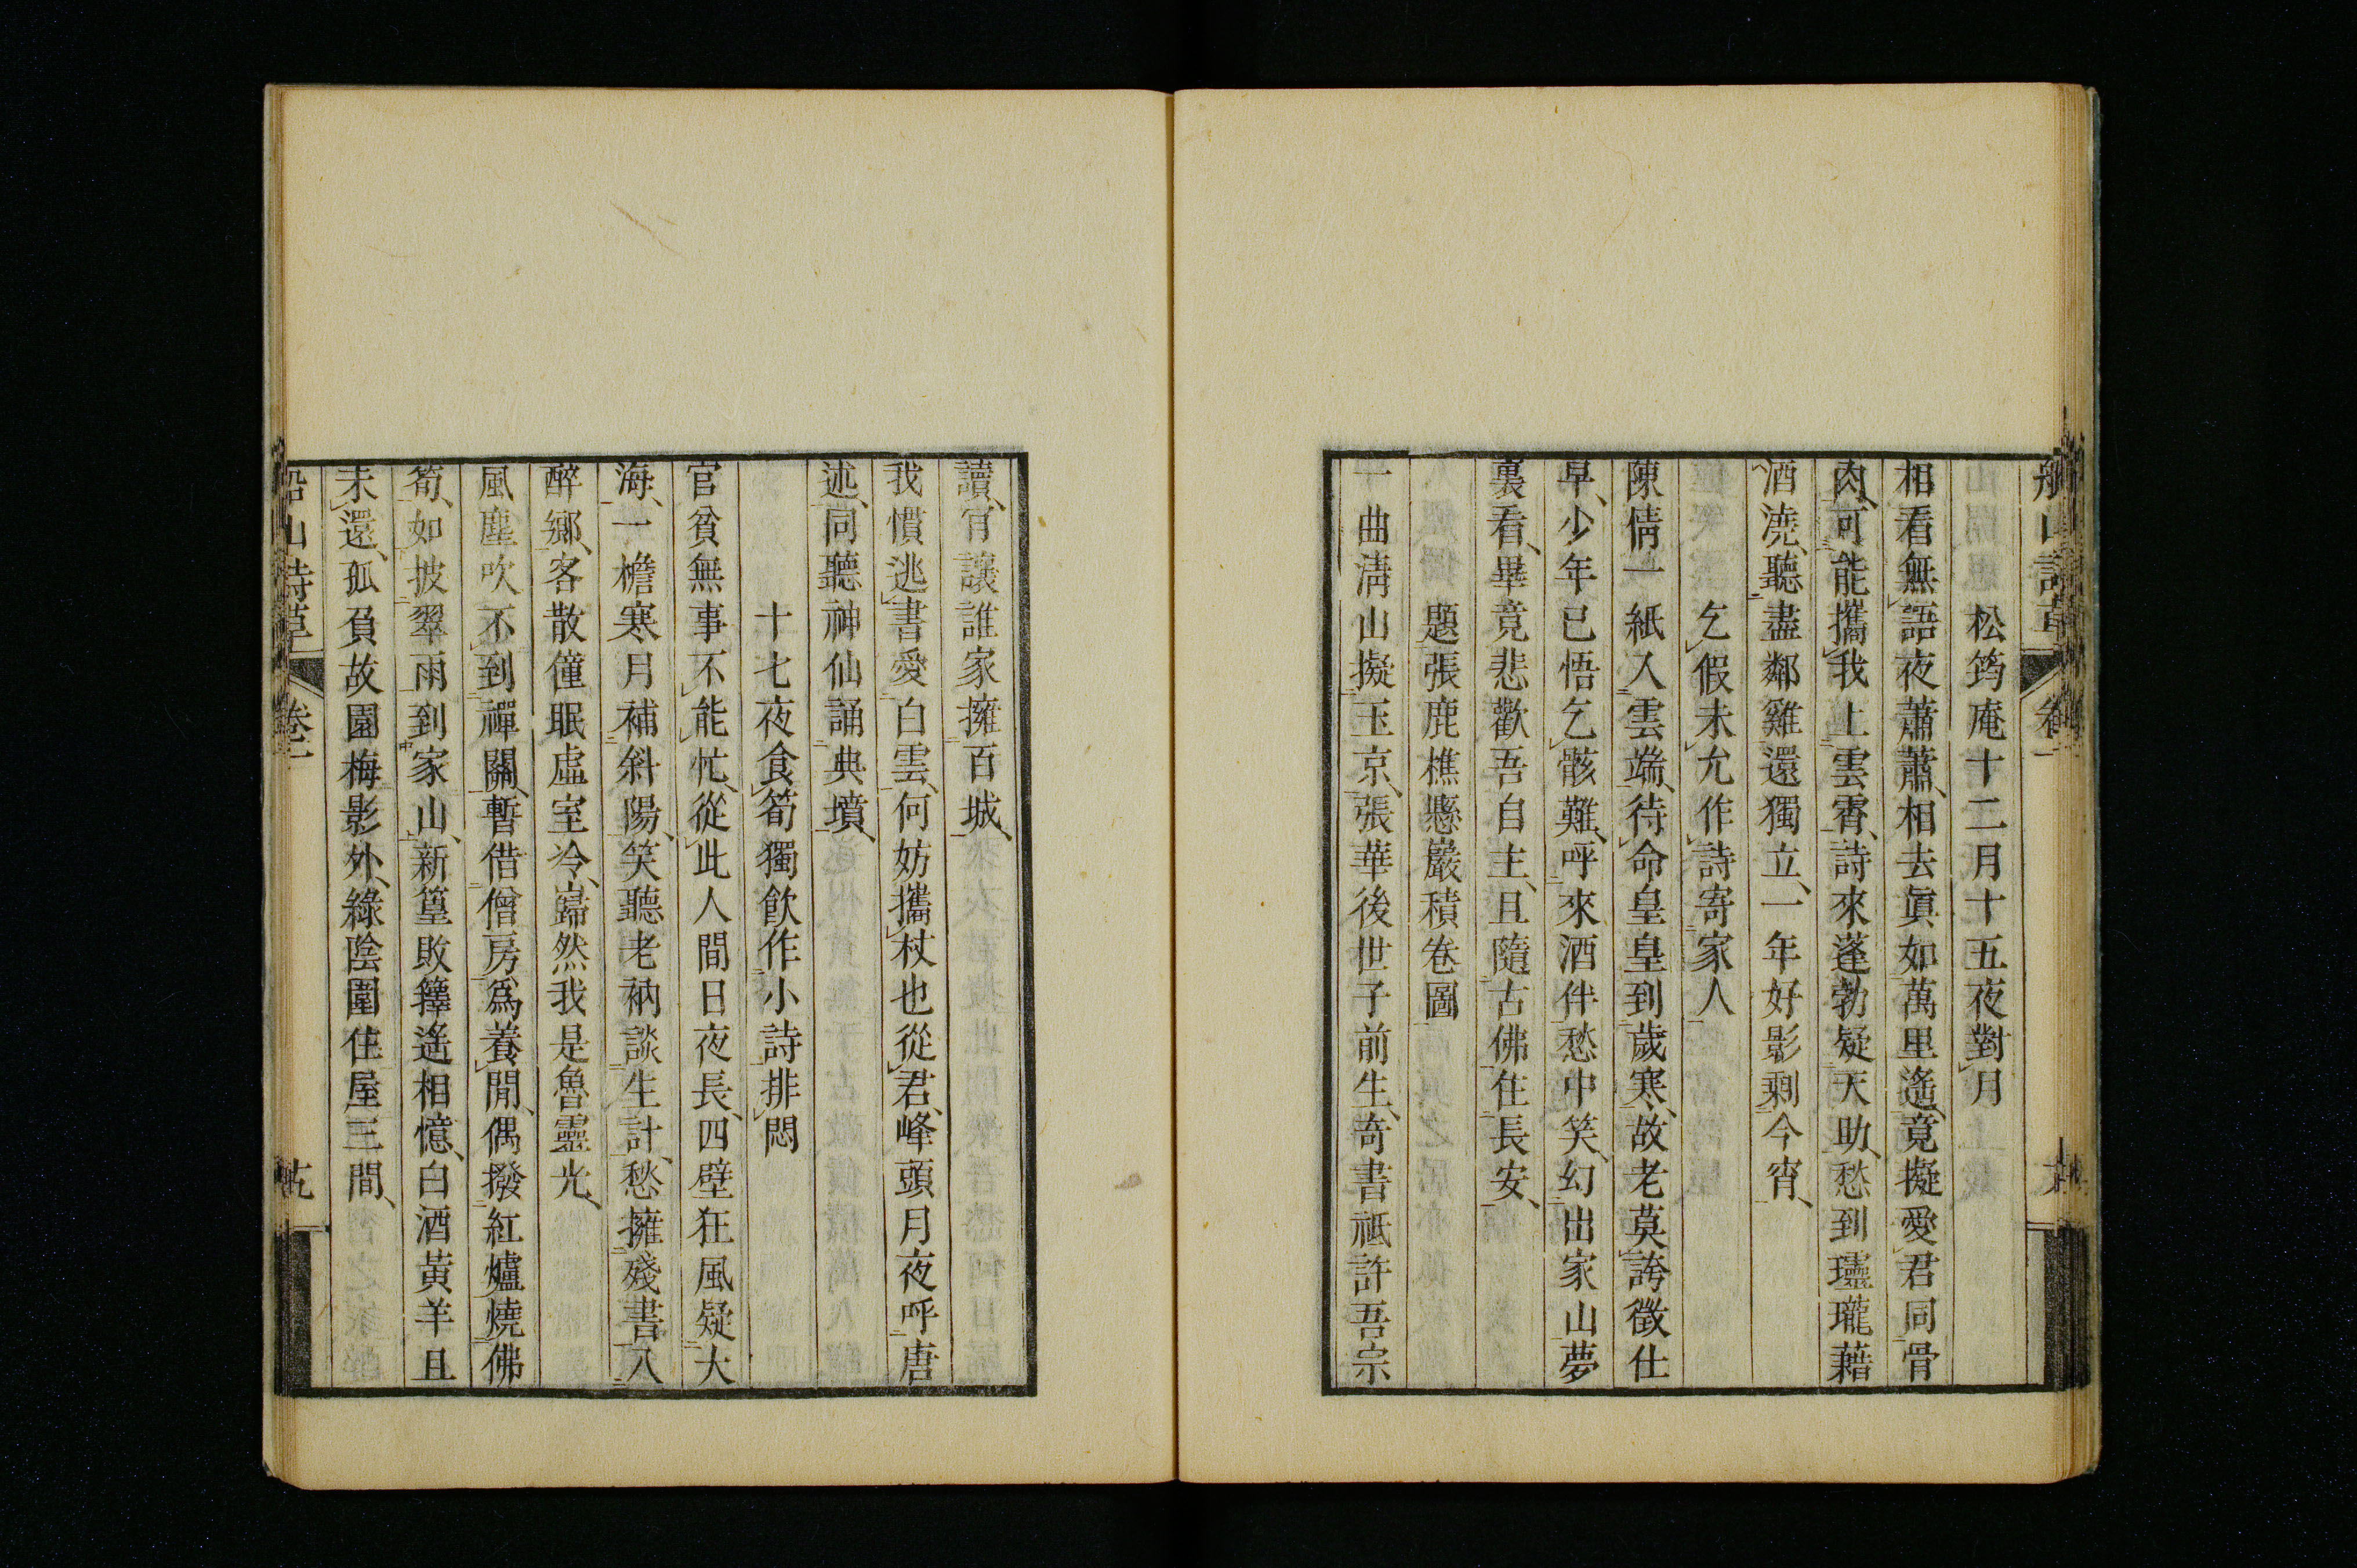 船山詩草 卷一
松筠庵十二月十五夜對月
相看無語夜蕭蕭、相去眞如萬里遙、竟擬愛君同骨
肉、可能攜我上雲霄、詩來蓬勃疑天助、愁到瓏瓏藉
酒澆、聽盡鄰雞還獨立、一年好影剩今宵、
乞假未允作詩寄家人
陳情一紙入雲端、待命皇皇到歲寒、故老莫誇徵仕
早、少年已悟乞骸難、呼來酒伴愁中笑、幻出家山夢
裏看、畢竟悲歡吾自主、且隨古佛住長安、
題張鹿樵懸巖積卷圖
一曲淸山擬玉京、張華後世子前生、奇書祗許吾宗
讀、肎讓誰家擁百城、
我慣逃書愛白雲、何妨攜杖也從君、峰頭月夜呼唐
述、同聽神仙誦典墳、
十七夜食筍獨飮作小詩排悶
官貧無事不能忙、從此人間日夜長、四壁狂風疑大
海、一檐寒月補斜陽、笑聽老衲談生計、愁擁殘書入
醉鄉、客散僮眠虛室冷、巋然我是魯靈光、
風塵吹不到禪關、暫借僧房爲養閒、偶撥紅爐燒佛
筍、如披翠雨到家山、新篁敗籜遙相憶、白酒黃羊且
未還、孤負故園梅影外、綠陰圍住屋三間、
船山詩草 卷一